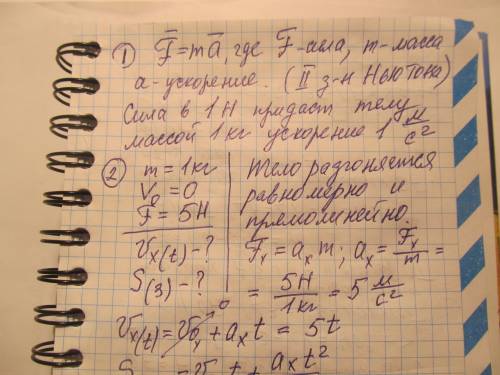 ① F̅ = ma̅, где F̅-сила, m-масса
a-ускорение. (II з-н Ньютона)
Сила в 1Н придаст телу
массой 1кг ускорение 1 м/с²
② m = 1кг
V₀ = 0
F̅ = 5Н
Vx(t) - ?
S(3) - ?
Тело разгоняется
равномерно и
прямолинейно.
Fx = ax m; ax = Fx/m =
= 5Н/1кг = 5 м/с²
Vx(t) = V₀x + ax t = 5t
axt²